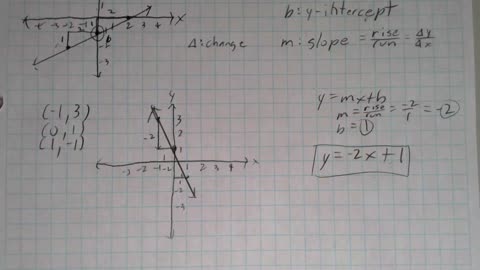 b: y-intercept
Δ: change
m: slope = rise/run = Δy/Δx
(-1, 3)
(0, 1)
(1, -1)
y = mx + b
m = rise/run = -2/1 = -2
b = 1
y = -2x + 1